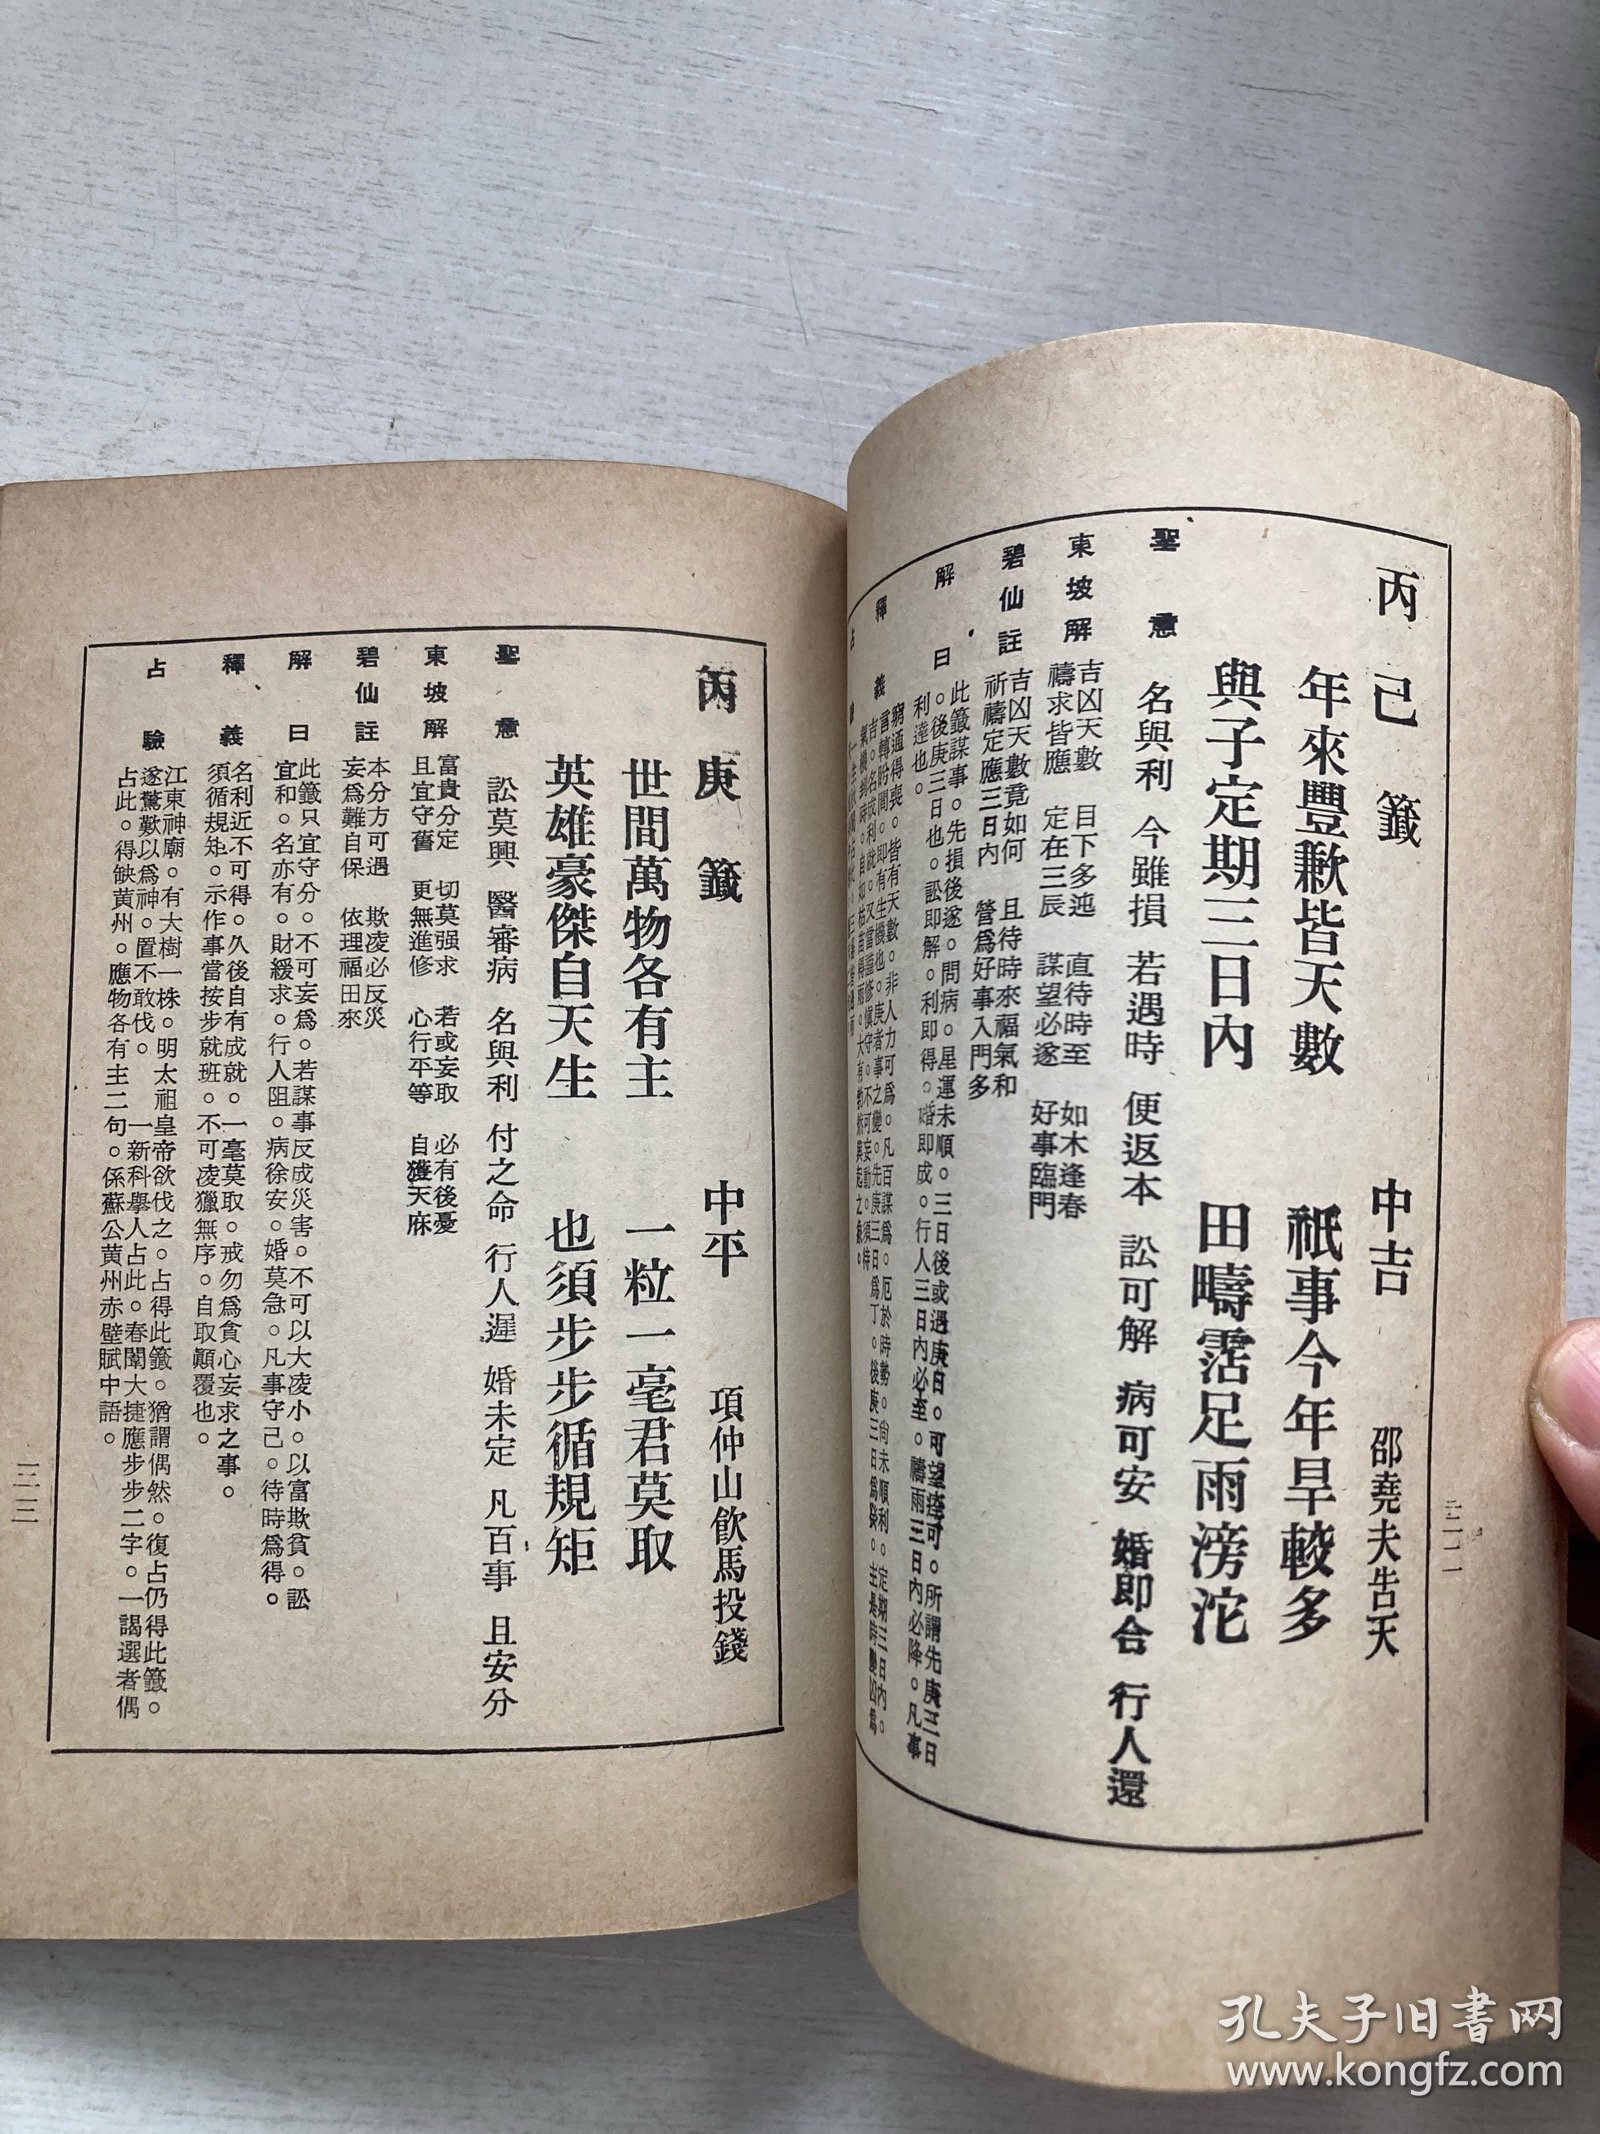 丙己籤　中吉　邵堯夫告天
年來豐歉皆天數　祇事今年旱較多
與子定期三日內　田疇霑足雨滂沱
聖意　名與利　今雖損　若遇時　便返本　訟可解　病可安　婚即合　行人還
東坡解　吉凶天數　目下多迍　直待時至　如木逢春
禱求皆應　定在三辰　謀望必遂　好事臨門
碧仙註　吉凶天數竟如何　且待時來福氣和
祈禱定應三日內　營爲好事入門多
解曰　此籤謀事。先損後遂。問病。星運未順。三日後或遇庚日。可望痊可。所謂先庚三日
。後庚三日也。訟即解。利即得。婚即成。行人三日內必至。禱雨三日內必降。凡事
利達也。
釋義　窮通得喪。皆有天數。非人力可爲。凡百謀爲。厄於時勢。尙未順利。定期三日內。
三二
丙庚籤　中平　項仲山飲馬投錢
世間萬物各有主　一粒一毫君莫取
英雄豪傑自天生　也須步步循規矩
聖意　訟莫興　醫審病　名與利　付之命　行人遲　婚未定　凡百事　且安分
東坡解　富貴分定　切莫强求　若或妄取　必有後憂
且宜守舊　更無進修　心行平等　自獲天庥
碧仙註　本分方可遇　欺凌必反災
妄爲難自保　依理福田來
解曰　此籤只宜守分。不可妄爲。若謀事反成災害。不可以大凌小。以富欺貧。訟
宜和。名亦有。財緩求。行人阻。病徐安。婚莫急。凡事守己。待時爲得。
釋義　名利近不可得。久後自有成就。一毫莫取。戒勿爲貪心妄求之事。
須循規矩。示作事當按步就班。不可凌獵無序。自取顚覆也。
占驗　江東神廟。有大樹一株。明太祖皇帝欲伐之。占得此籤。猶謂偶然。復占仍得此籤。
遂驚歎以爲神。置不敢伐。　一新科擧人占此。春闈大捷應步步二字。一謁選者偶
占此。得缺黄州。應物各有主二句。係蘇公黄州赤壁賦中語。
三三
孔夫子旧書网
www.kongfz.com